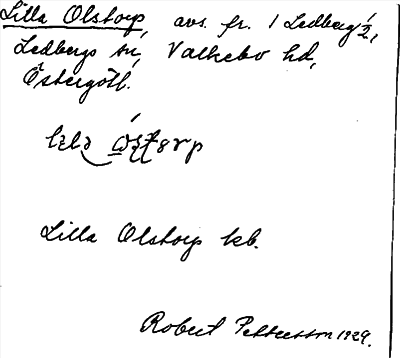 Lilla Olstorp, avs. fr. 1 Ledberg 2,
Ledbergs sn, Valkebo hd,
Östergötl.
Lilla Olstorp kb.
Robert Pettersson 1929.